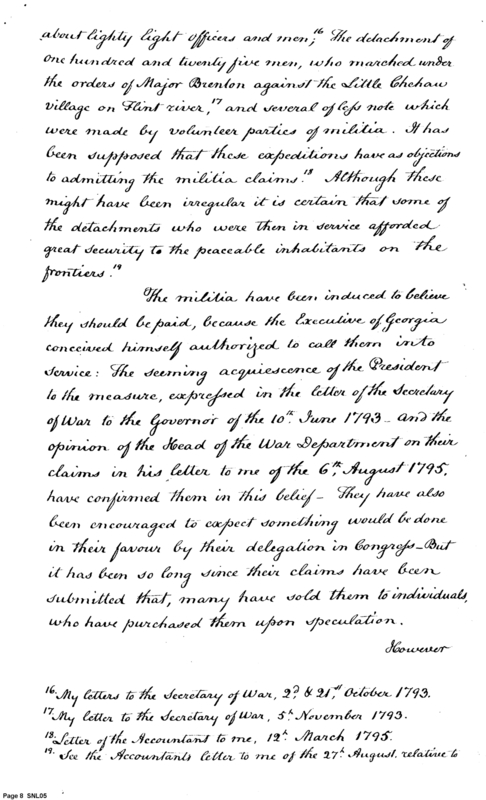 about Eighty Eight Officers and men;¹⁶ The detachment of
one hundred and twenty five men, who marched under
the orders of Major Brenton against the Little Chehaw
village on Flint river,¹⁷ and several of less note which
were made by volunteer parties of militia. It has
been supposed that these expeditions have as objections
to admitting the militia claims.¹⁸ Although these
might have been irregular it is certain that some of
the detachments who were then in service afforded
great security to the peaceable inhabitants on the
frontiers.¹⁹
The militia have been induced to believe
they should be paid, because the Executive of Georgia
conceived himself authorized to call them into
service: The seeming acquiescence of the President
to the measure, expressed in the letter of the Secretary
of War to the Governor of the 10th. June 1793 – and the
opinion of the Head of the War Department on their
claims in his letter to me of the 6th, August 1795,
have confirmed them in this belief – They have also
been encouraged to expect something would be done
in their favour by their delegation in Congress – But
it has been so long since their claims have been
submitted that, many have sold them to individuals,
who have purchased them upon speculation.
However
16. My letters to the Secretary of War, 2d. & 21st, October 1793.
17. My letter to the Secretary of War, 5th November 1793.
18. Letter of the Accountant to me, 12th. March 1795.
19. See the Accountants letter to me of the 27th August, relative to
Page 8 SNL05